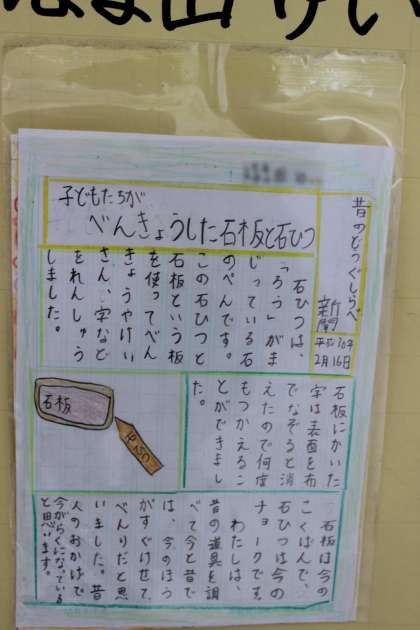 昔のどうぐしらべ
新聞
平成30年
2月16日
子どもたちが
べんきょうした石板と石ひつ
石ひつは、
「ろう」がま
じっている石
のぺんです。
この石ひつと
石板という板
を使ってべん
きょうやけい
さん、字など
をれんしゅう
しました。
石板にかいた
字は表面を布
でなぞると消
えたので何度
もつかえるこ
とができまし
た。
石板
石ひつ
石板は今の
こくばんで、
石ひつは今の
チョークです。
わたしは、
昔の道具を調
べて今と昔で
は、今のほう
がすぐけせて
べんりだと思
いました。昔
人のおかげで
今がらくになっている
と思います。